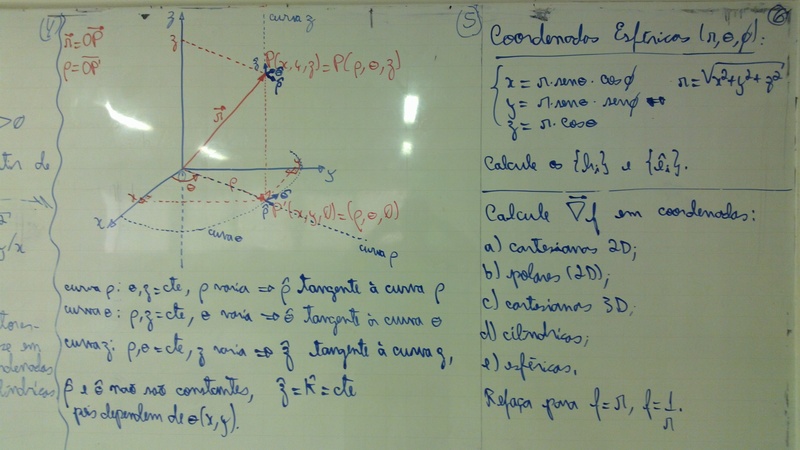 (4)
r⃗ = OP⃗
ρ = OP'
z
curva z
z
P(x,y,z) = P(ρ,θ,z)
ẑ
θ̂
ρ̂
r⃗
y
y
θ
ρ
x
x
θ̂
ρ̂
P'(x,y,0) = (ρ,θ,0)
curva θ
curva ρ
curva ρ: θ,z = cte, ρ varia ⇒ ρ̂ tangente à curva ρ
curva θ: ρ,z = cte, θ varia ⇒ θ̂ tangente à curva θ
curva z: ρ,θ = cte, z varia ⇒ ẑ tangente à curva z,
ρ̂ e θ̂ não são constantes, ẑ = k̂ = cte
pois dependem de θ(x,y).
>0
de
y/x
ze em
(5)
(6)
Coordenadas Esféricas (r,θ,φ):
x = r·senθ·cosφ r = √x²+y²+z²
y = r·senθ·senφ
z = r·cosθ
Calcule os {hᵢ} e {êᵢ}.
Calcule ∇⃗f em coordenadas:
a) cartesianas 2D;
b) polares (2D);
c) cartesianas 3D;
d) cilíndricas;
e) esféricas.
Refaça para f = r, f = 1/r.